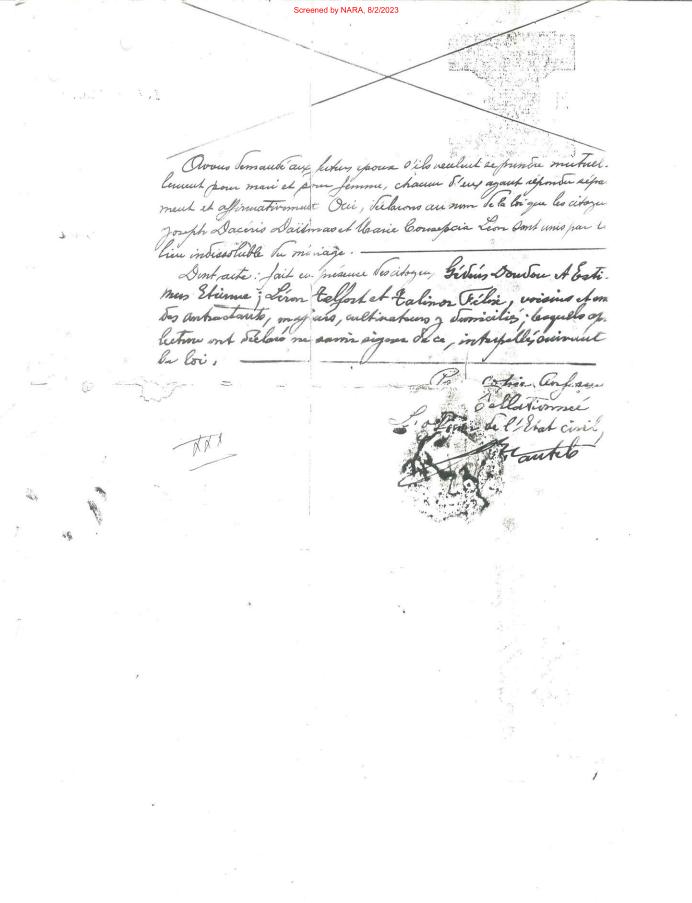 Screened by NARA, 8/2/2023
Avons demandé aux futurs époux s'ils veulent se prendre mutuel-
lement pour mari et pour femme, chacun d'eux ayant répondu sépa
ment et affirmativement Oui, déclarons au nom de la loi que les citoyens
Joseph Daceris Daïsmas et Marie Léon sont unis par le
lien indissoluble du mariage.
Dont acte: fait en présence des citoyens Doudou et Esti-
mus Etienne; Léon Telfort et Talinor Félix, voisins et am
des contractants, majeurs, cultivateurs y domiciliés; lesquels ap
lecture ont déclaré ne savoir signer de ce, interpellés suivant
la loi.
Pr copie conforme
collationnée
L'officier de l'Etat civil,